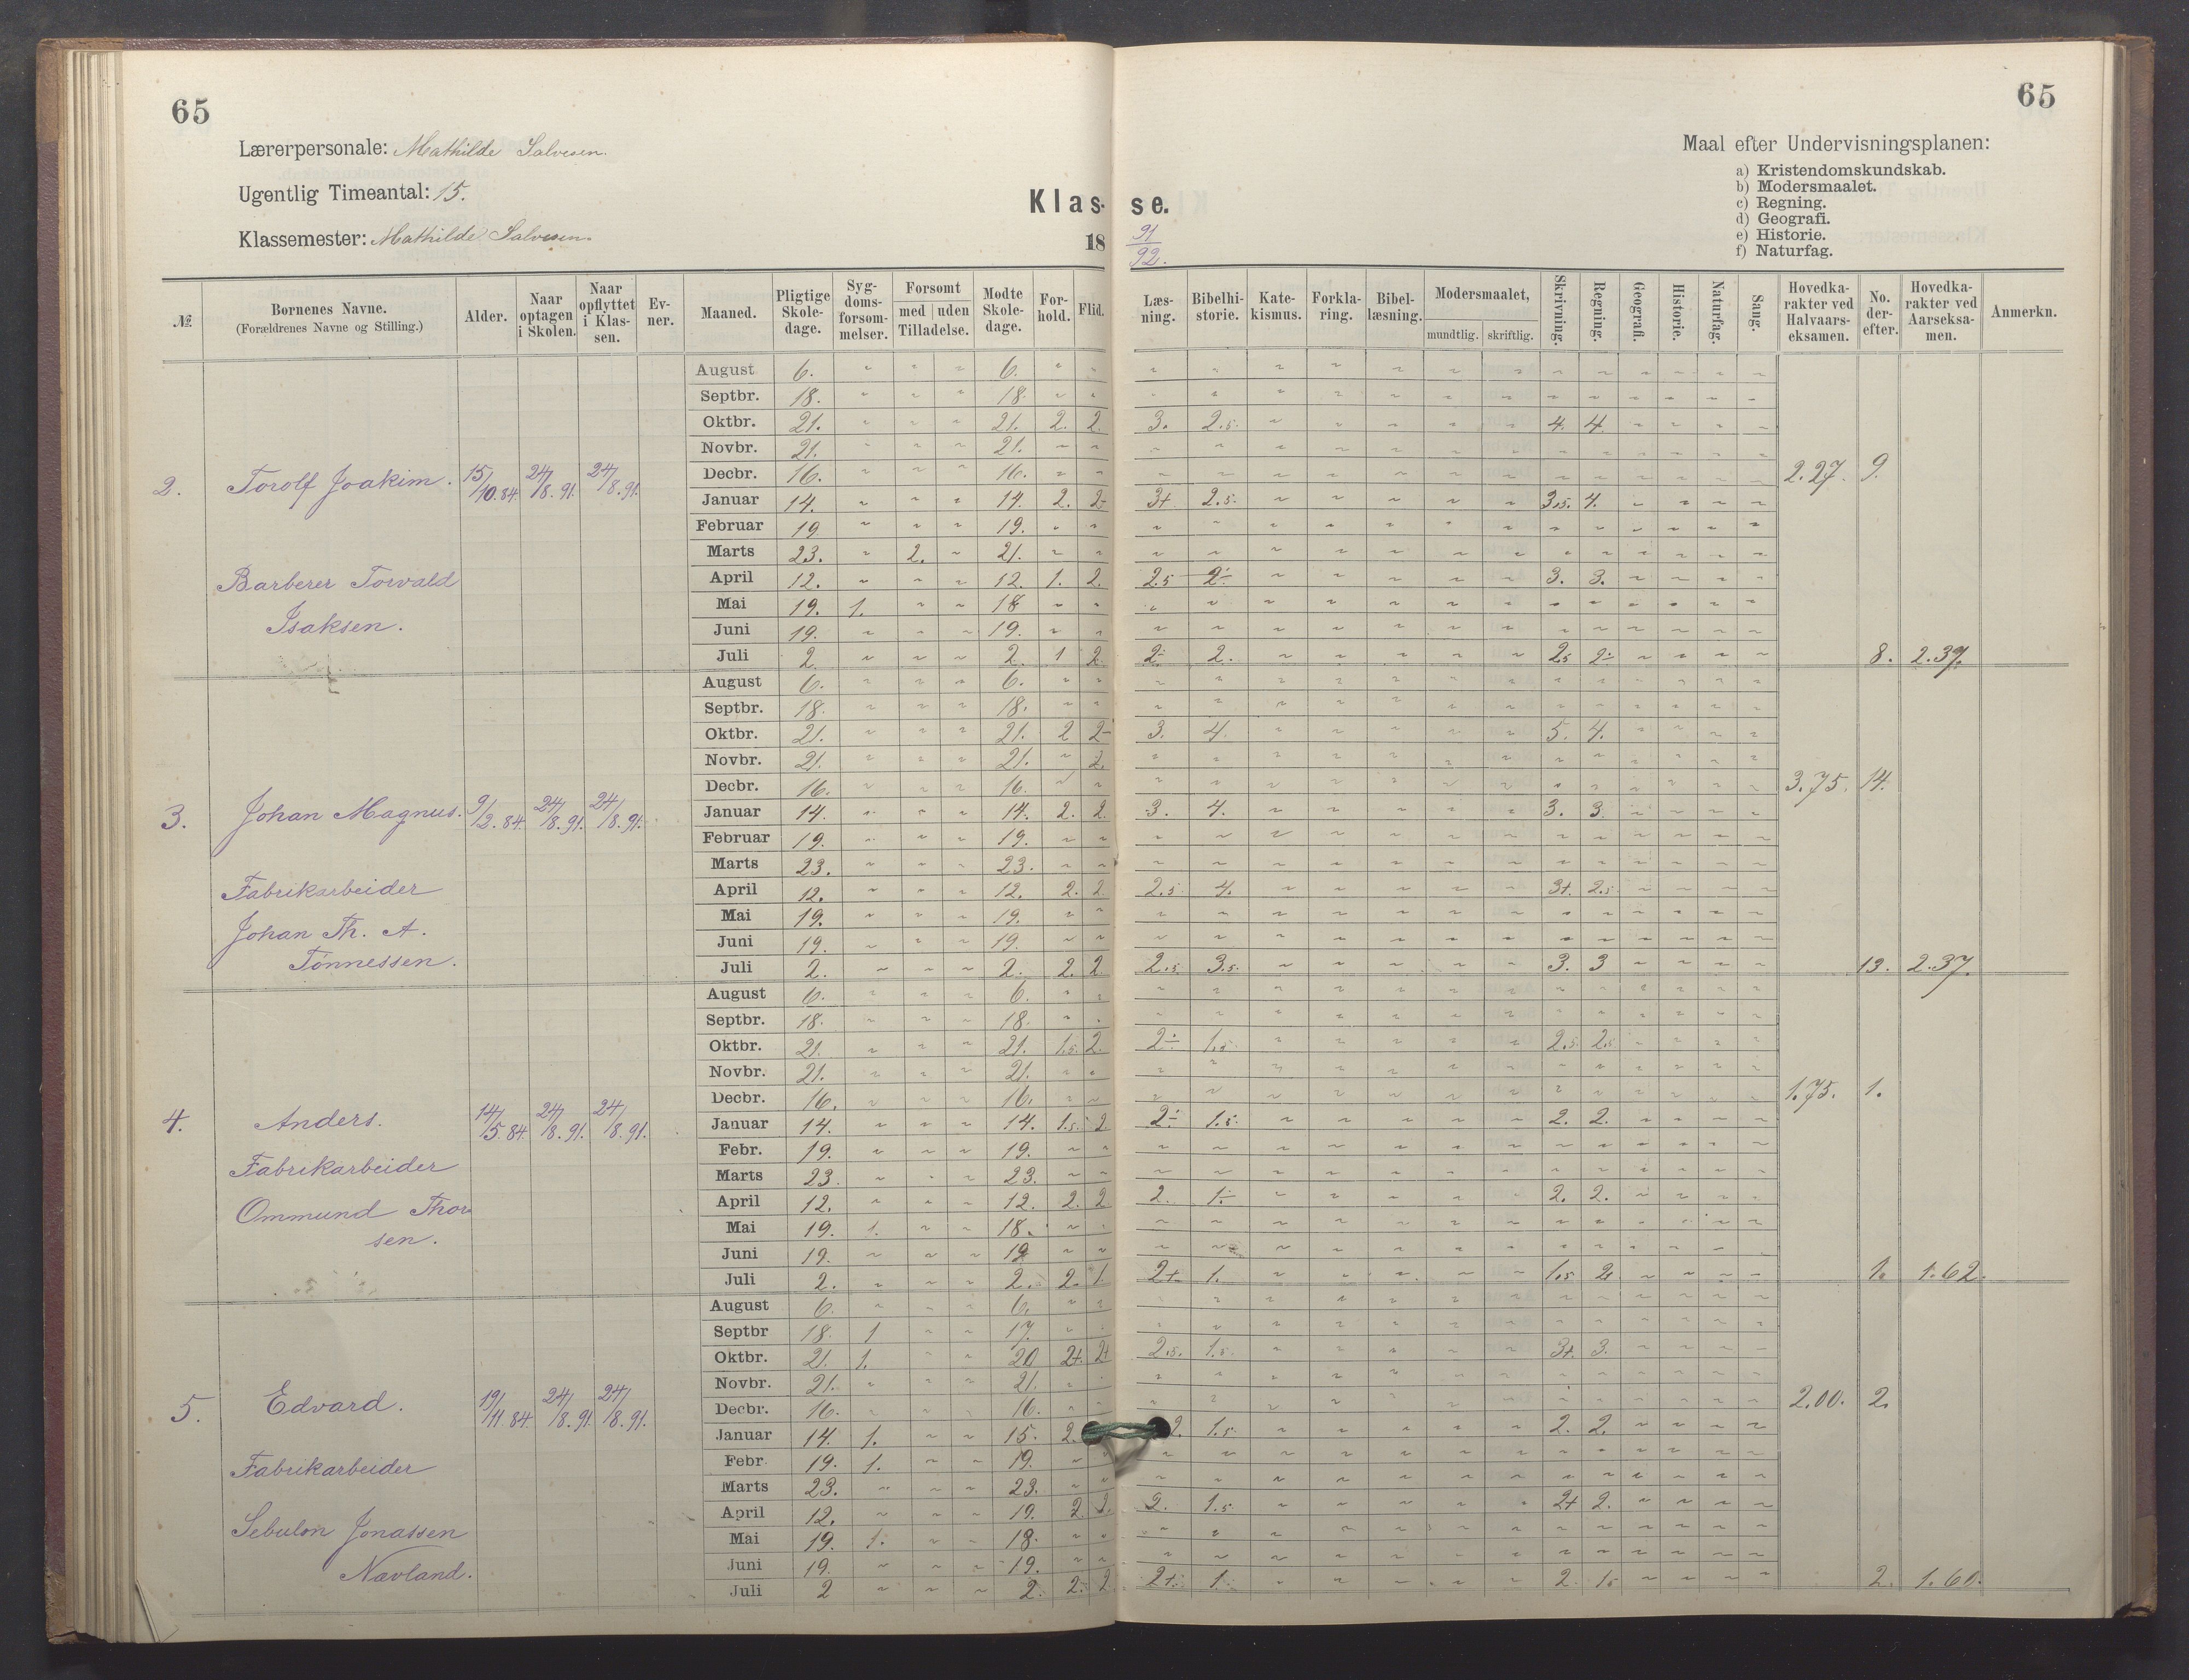 65
65
Lærerpersonale: Mathilde Salvesen.
Ugentlig Timeantal: 15.
Klassemester: Mathilde Salvesen.
Klas- se.
18 91/92.
Maal efter Undervisningsplanen:
a) Kristendomskundskab.
b) Modersmaalet.
c) Regning.
d) Geografi.
e) Historie.
f) Naturfag.
№ Børnenes Navne. (Forældrenes Navne og Stilling.) Alder. Naar optagen i Skolen. Naar opflyttet i Klassen. Evner. Maaned. Pligtige Skoledage. Sygdomsforsømmelser. Forsømt med uden Tilladelse. Mødte Skoledage. Forhold. Flid. Læsning. Bibelhistorie. Katekismus. Forklaring. Bibellæsning. Modersmaalet, mundtlig. skriftlig. Skrivning. Regning. Geografi. Historie. Naturfag. Sang. Hovedkarakter ved Halvaarseksamen. No. derefter. Hovedkarakter ved Aarseksamen. Anmerkn.
2. Torolf Joakim. 15/10.84 24/8.91. 24/8.91. 2.27. 9.
Barberer Torvald
Isaksen.
August 6. 6.
Septbr. 18. 18.
Oktbr. 21. 21. 2. 2. 3. 2.5. 4. 4.
Novbr. 21. 21.
Decbr. 16. 16.
Januar 14. 14. 2. 2- 3+ 2.5. 3.5. 4.
Februar 19. 19.
Marts 23. 2. 21.
April 12. 12. 1. 2. 2.5 2÷ 3. 3.
Mai 19. 1. 18
Juni 19. 19.
Juli 2 2. 1 2. 2÷ 2. 2.5 2÷ 8. 2.37.
3. Johan Magnus. 9/2.84. 24/8.91. 24/8.91. 3.75. 14.
Fabrikarbeider
Johan Th. A.
Tønnessen.
August 6. 6.
Septbr. 18. 18.
Oktbr. 21. 21. 2 2- 3. 4. 5. 4.
Novbr. 21. 21. 2.
Decbr. 16. 16.
Januar 14. 14. 2. 2. 3. 4. 3. 3.
Februar 19. 19.
Marts 23. 23.
April 12. 12. 2. 2. 2.5. 4. 3+. 2.5
Mai 19. 19.
Juni 19. 19.
Juli 2. 2. 2. 2. 2.5. 3.5. 3. 3 13. 2.37.
4. Anders. 14/5.84. 24/8.91. 24/8.91. 1.75. 1.
Fabrikarbeider
Ommund Thor
sen.
August 6. 6.
Septbr. 18. 18.
Oktbr. 21. 21. 1.5. 2. 2÷ 1.5. 2.5. 2.5.
Novbr. 21. 21.
Decbr. 16. 16.
Januar 14. 14. 1.5. 2 2÷ 1.5. 2. 2.
Febr. 19. 19.
Marts 23. 23.
April 12. 12. 2. 2 2. 1÷ 2. 2.
Mai 19. 1. 18.
Juni 19. 19
Juli 2. 2. 2. 1. 2+ 1. 1.5 2 1. 1.62.
5. Edvard. 19/11 84. 24/8.91. 24/8.91. 2.00. 2.
Fabrikarbeider
Sebulon Jonassen
Navland.
August 6. 6.
Septbr 18. 1 17.
Oktbr. 21. 1. 20 2+. 2+ 2.5. 1.5. 3+. 3.
Novbr. 21. 21.
Decbr. 16. 16.
Januar 14. 1. 15. 2. 2. 1.5. 2. 2.
Febr. 19. 1. 19.
Marts 23. 23.
April 12. 19. 2 2. 2. 1.5. 2+ 2.
Mai 19. 1. 18.
Juni 19. 19.
Juli 2 2. 2. 2. 2+ 1 2. 2.